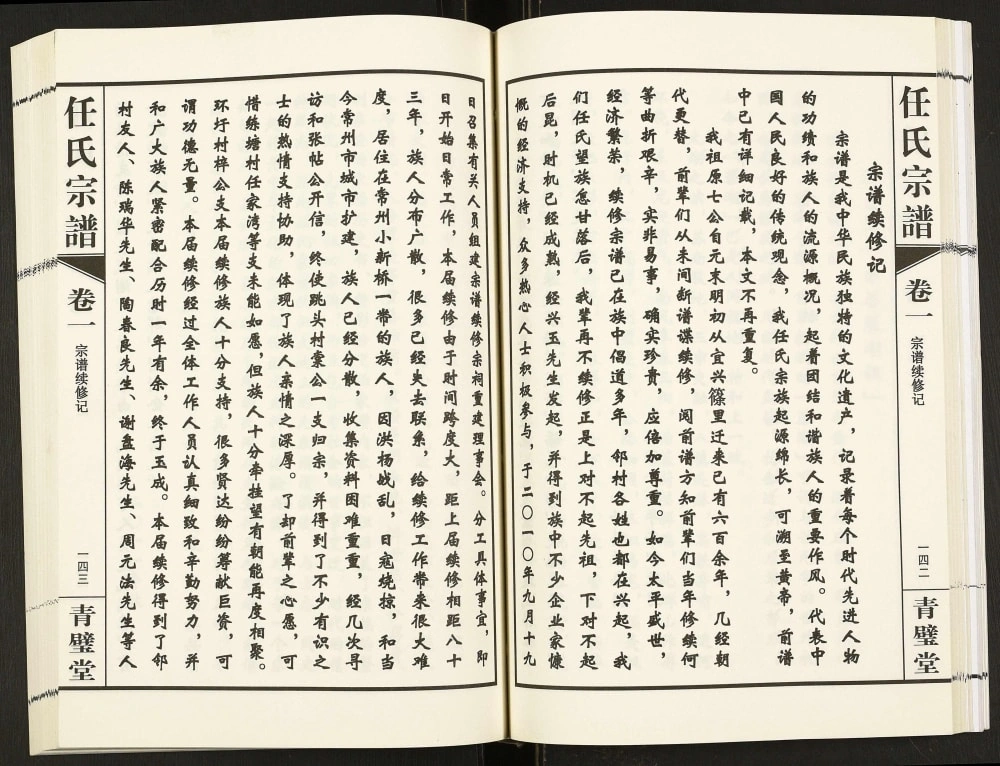 任氏宗譜
卷一
宗谱续修记
一四二
青璧堂
宗谱续修记
宗谱是我中华民族独特的文化遗产，记录着每个时代先进人物
的功绩和族人的流源概况，起着团结和谐族人的重要作风。代表中
国人民良好的传统观念，我任氏宗族起源绵长，可溯至黄帝，前谱
中已有详细记载，本文不再重复。
我祖原七公自元末明初从宜兴篠里迁来已有六百余年，几经朝
代更替，前辈们从未间断谱谍续修，阅前谱方知前辈们当年修续何
等曲折艰辛，实非易事，确实珍贵　应倍加尊重。如今太平盛世，
经济繁荣，续修宗谱已在族中倡道多年，邻村各姓也都在兴起，我
们任氏望族怎甘落后，我辈再不续修正是上对不起先祖，下对不起
后昆，时机已经成熟，经兴玉先生发起，并得到族中不少企业家慷
慨的经济支持，众多热心人士积极参与，于二〇一〇年九月十九
日召集有关人员组建宗谱续修宗祠重建理事会。分工具体事宜，即
日开始日常工作，本届续修由于时间跨度大，距上届续修相距八十
三年，族人分布广散，很多已经失去联系，给续修工作带来很大难
度，居住在常州小新桥一带的族人，因洪杨战乱，日寇烧掠，和当
今常州市城市扩建，族人已经分散，收集资料困难重重，经几次寻
访和张帖公开信，终使跳头村棠公一支归宗，并得到了不少有识之
士的热情支持协助，体现了族人亲情之深厚。了却前辈之心愿，可
惜练塘村任家湾等支未能如愿，但族人十分牵挂望有朝能再度相聚。
环圩村梓公支本届续修族人十分支持，很多贤达纷纷筹献巨资，可
谓功德无量。本届续修经过全体工作人员认真细致和辛勤努力，并
和广大族人紧密配合历时一年有余，终于玉成。本届续修得到了邻
村友人、陈瑞华先生、陶春良先生、谢盘海先生、周元法先生等人
任氏宗譜
卷一
宗谱续修记
一四三
青璧堂